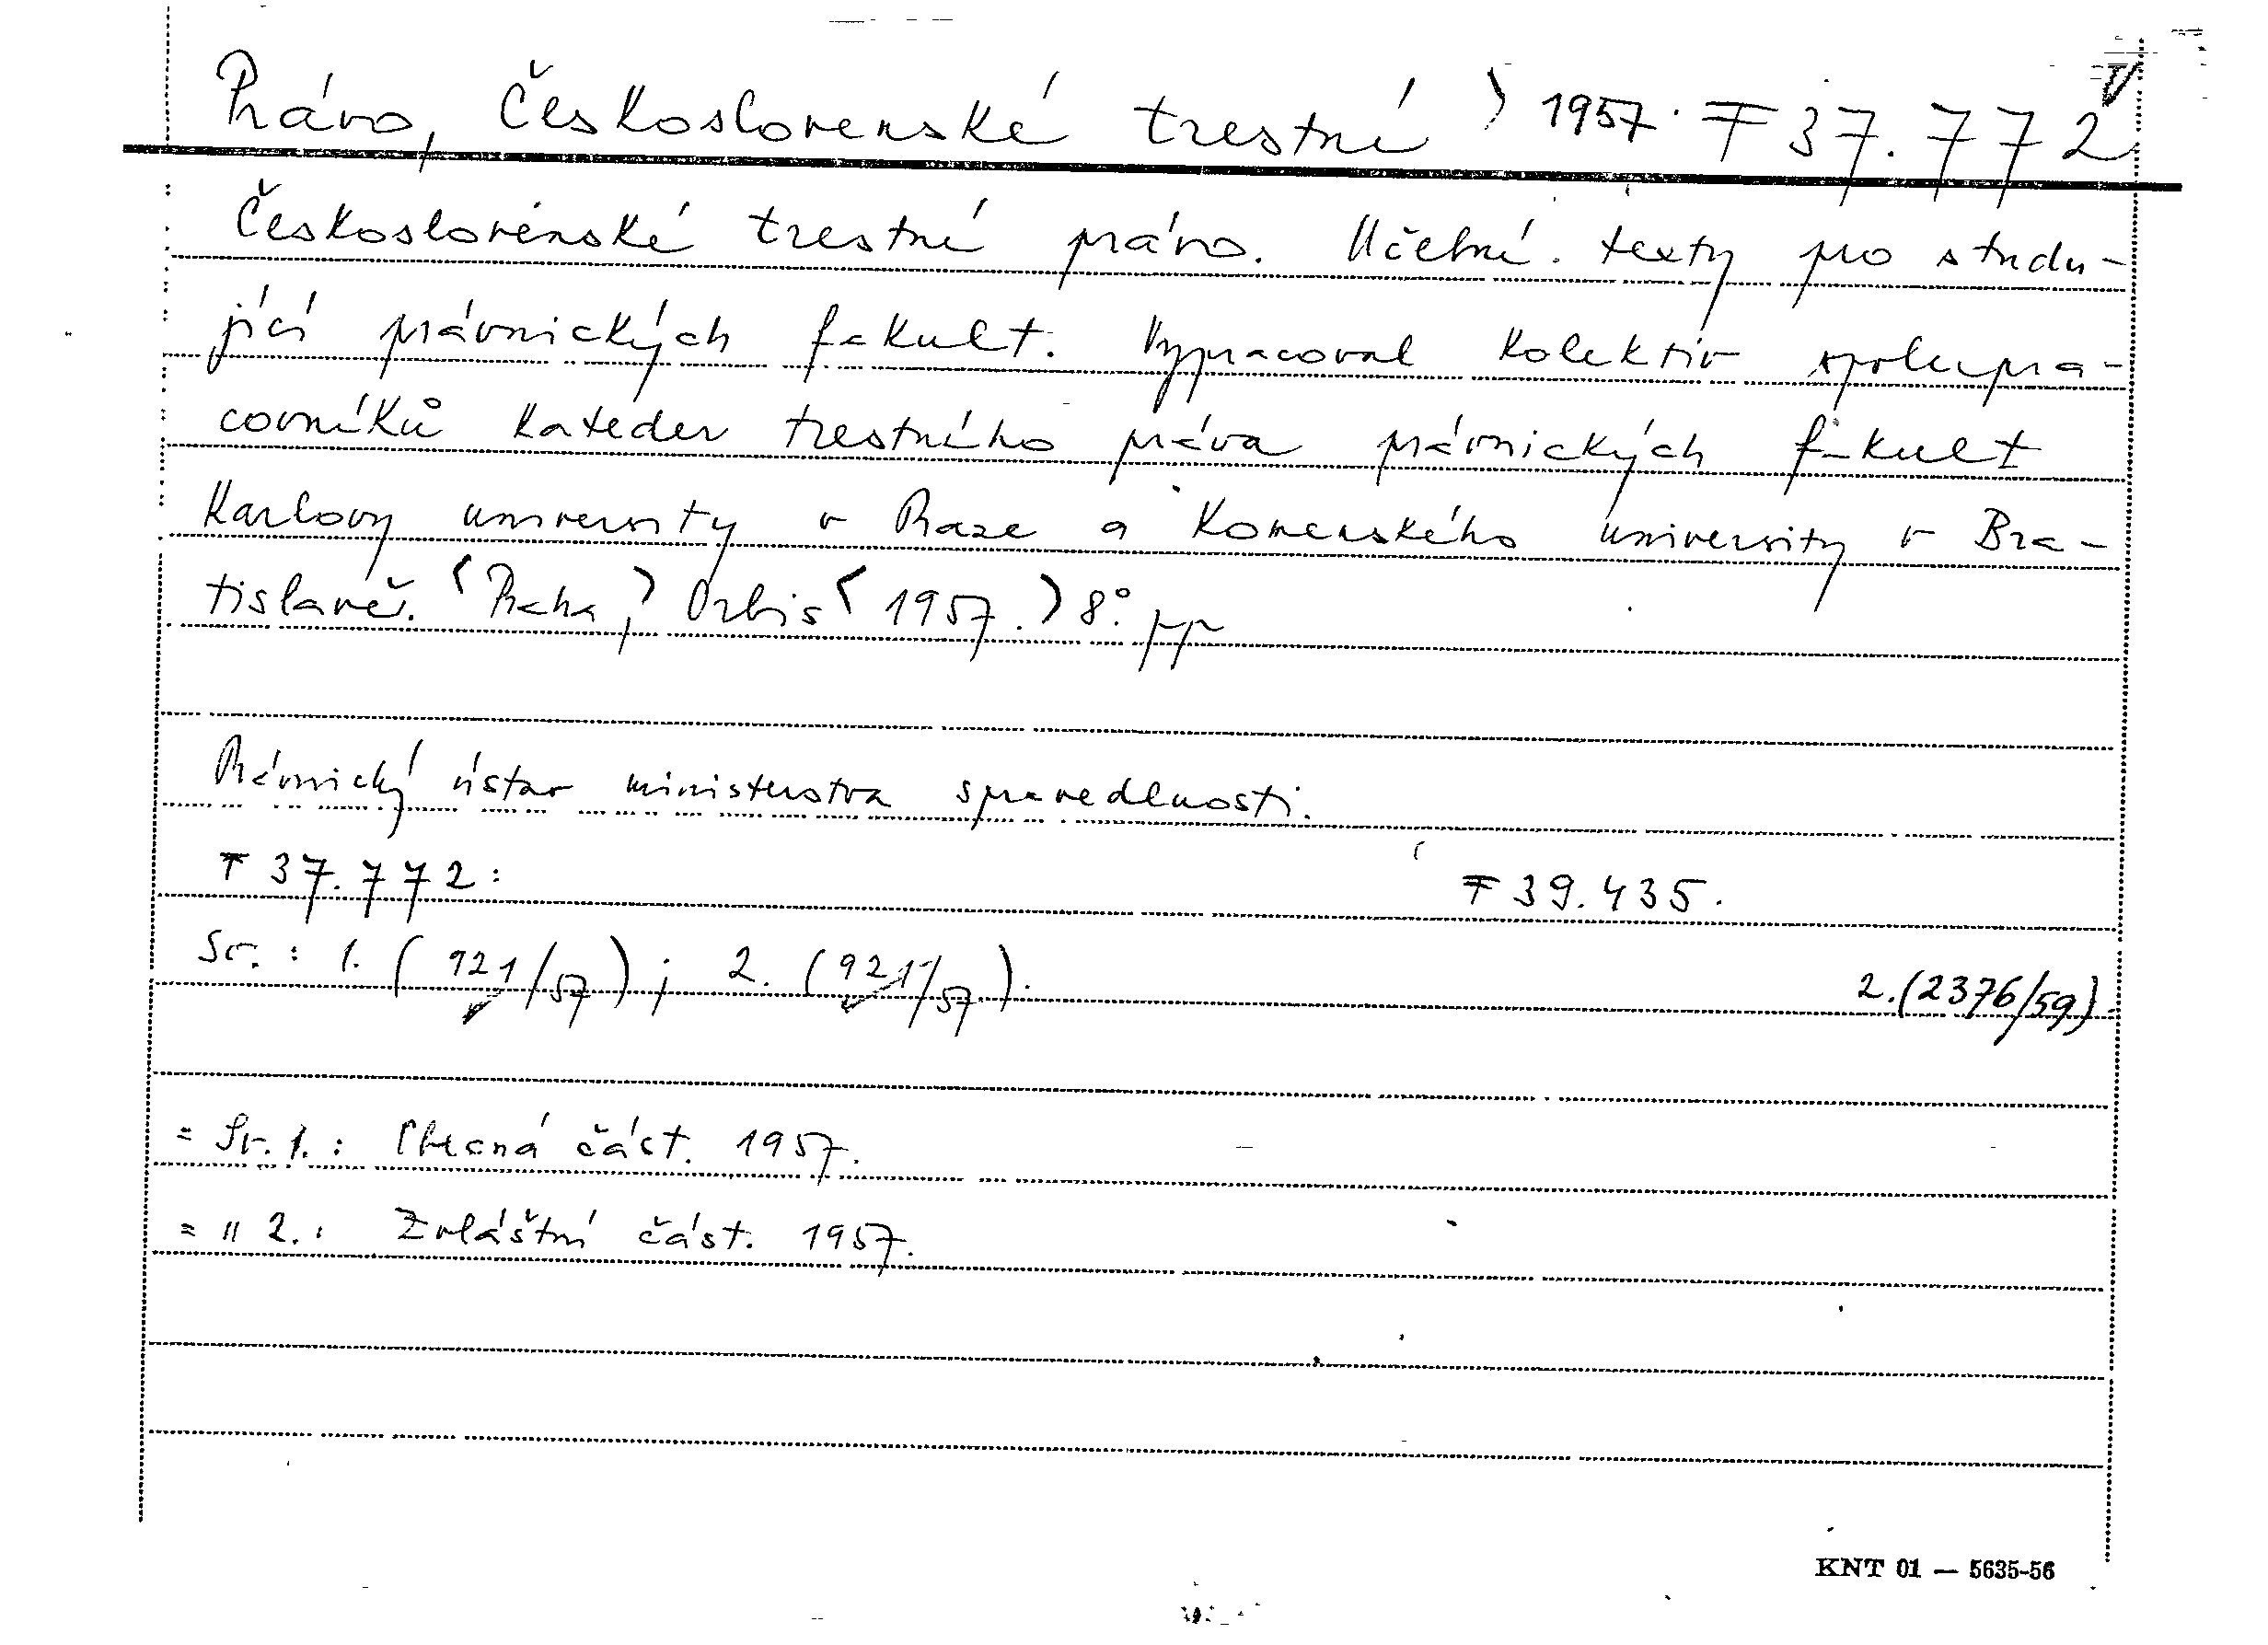 Právo, Československé trestné ) 1957. F 37.772
Československé trestné právo. Učebné texty pro studu-
jící právnických fakult. Vypracoval kolektiv spolupra-
covníků kateder trestného práva právnických fakult
Karlovy university v Praze a Komenského university v Bra-
tislavě. (Praha,) Orbis (1957.) 8°. pp
Právnický ústav ministerstva spravedlnosti.
F 37.772: F 39.435.
Sv.: 1. (921/57); 2. (921/57). 2.(2376/59).
= Sv. 1.: Obecná část. 1957.
= " 2.: Zvláštní část. 1957.
KNT 01 — 5635-56